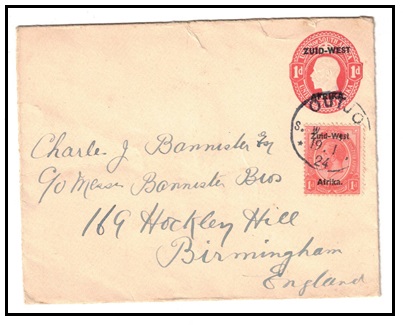 ZUID-WEST
1d 1d
OUTJO
S. W.
19 . 1
24
Zuid-West
Afrika.
1d 1d
Charles J Bannister Esq
C/o Messrs Bannister Bros
169 Hockley Hill
Birmingham
England